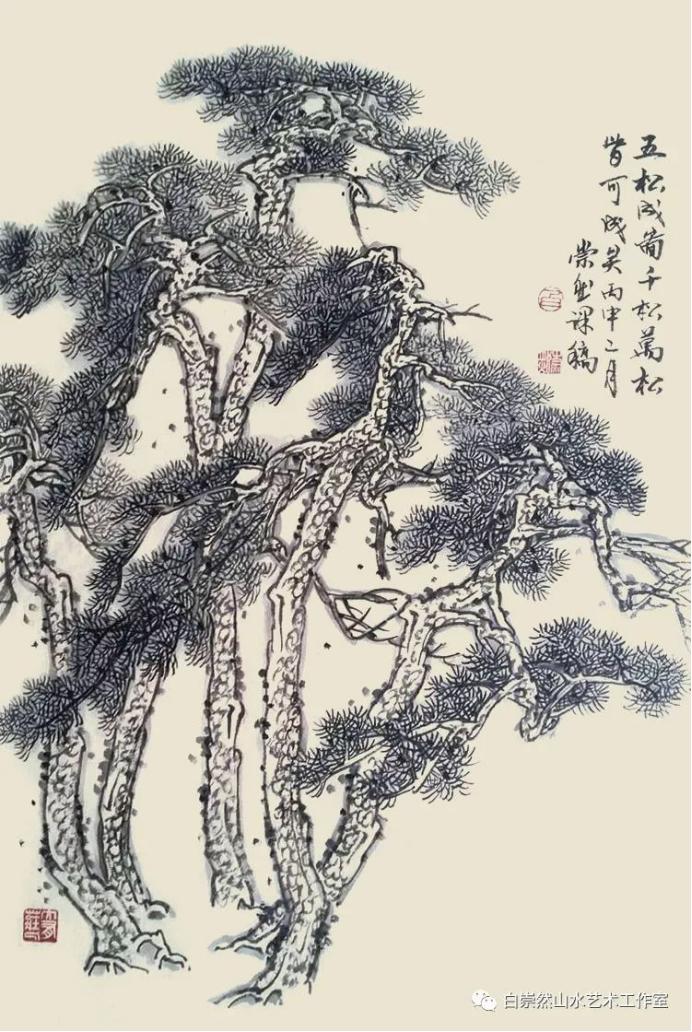 五松成图千松万松
皆可成矣丙申二月
崇然课稿
白崇然山水艺术工作室